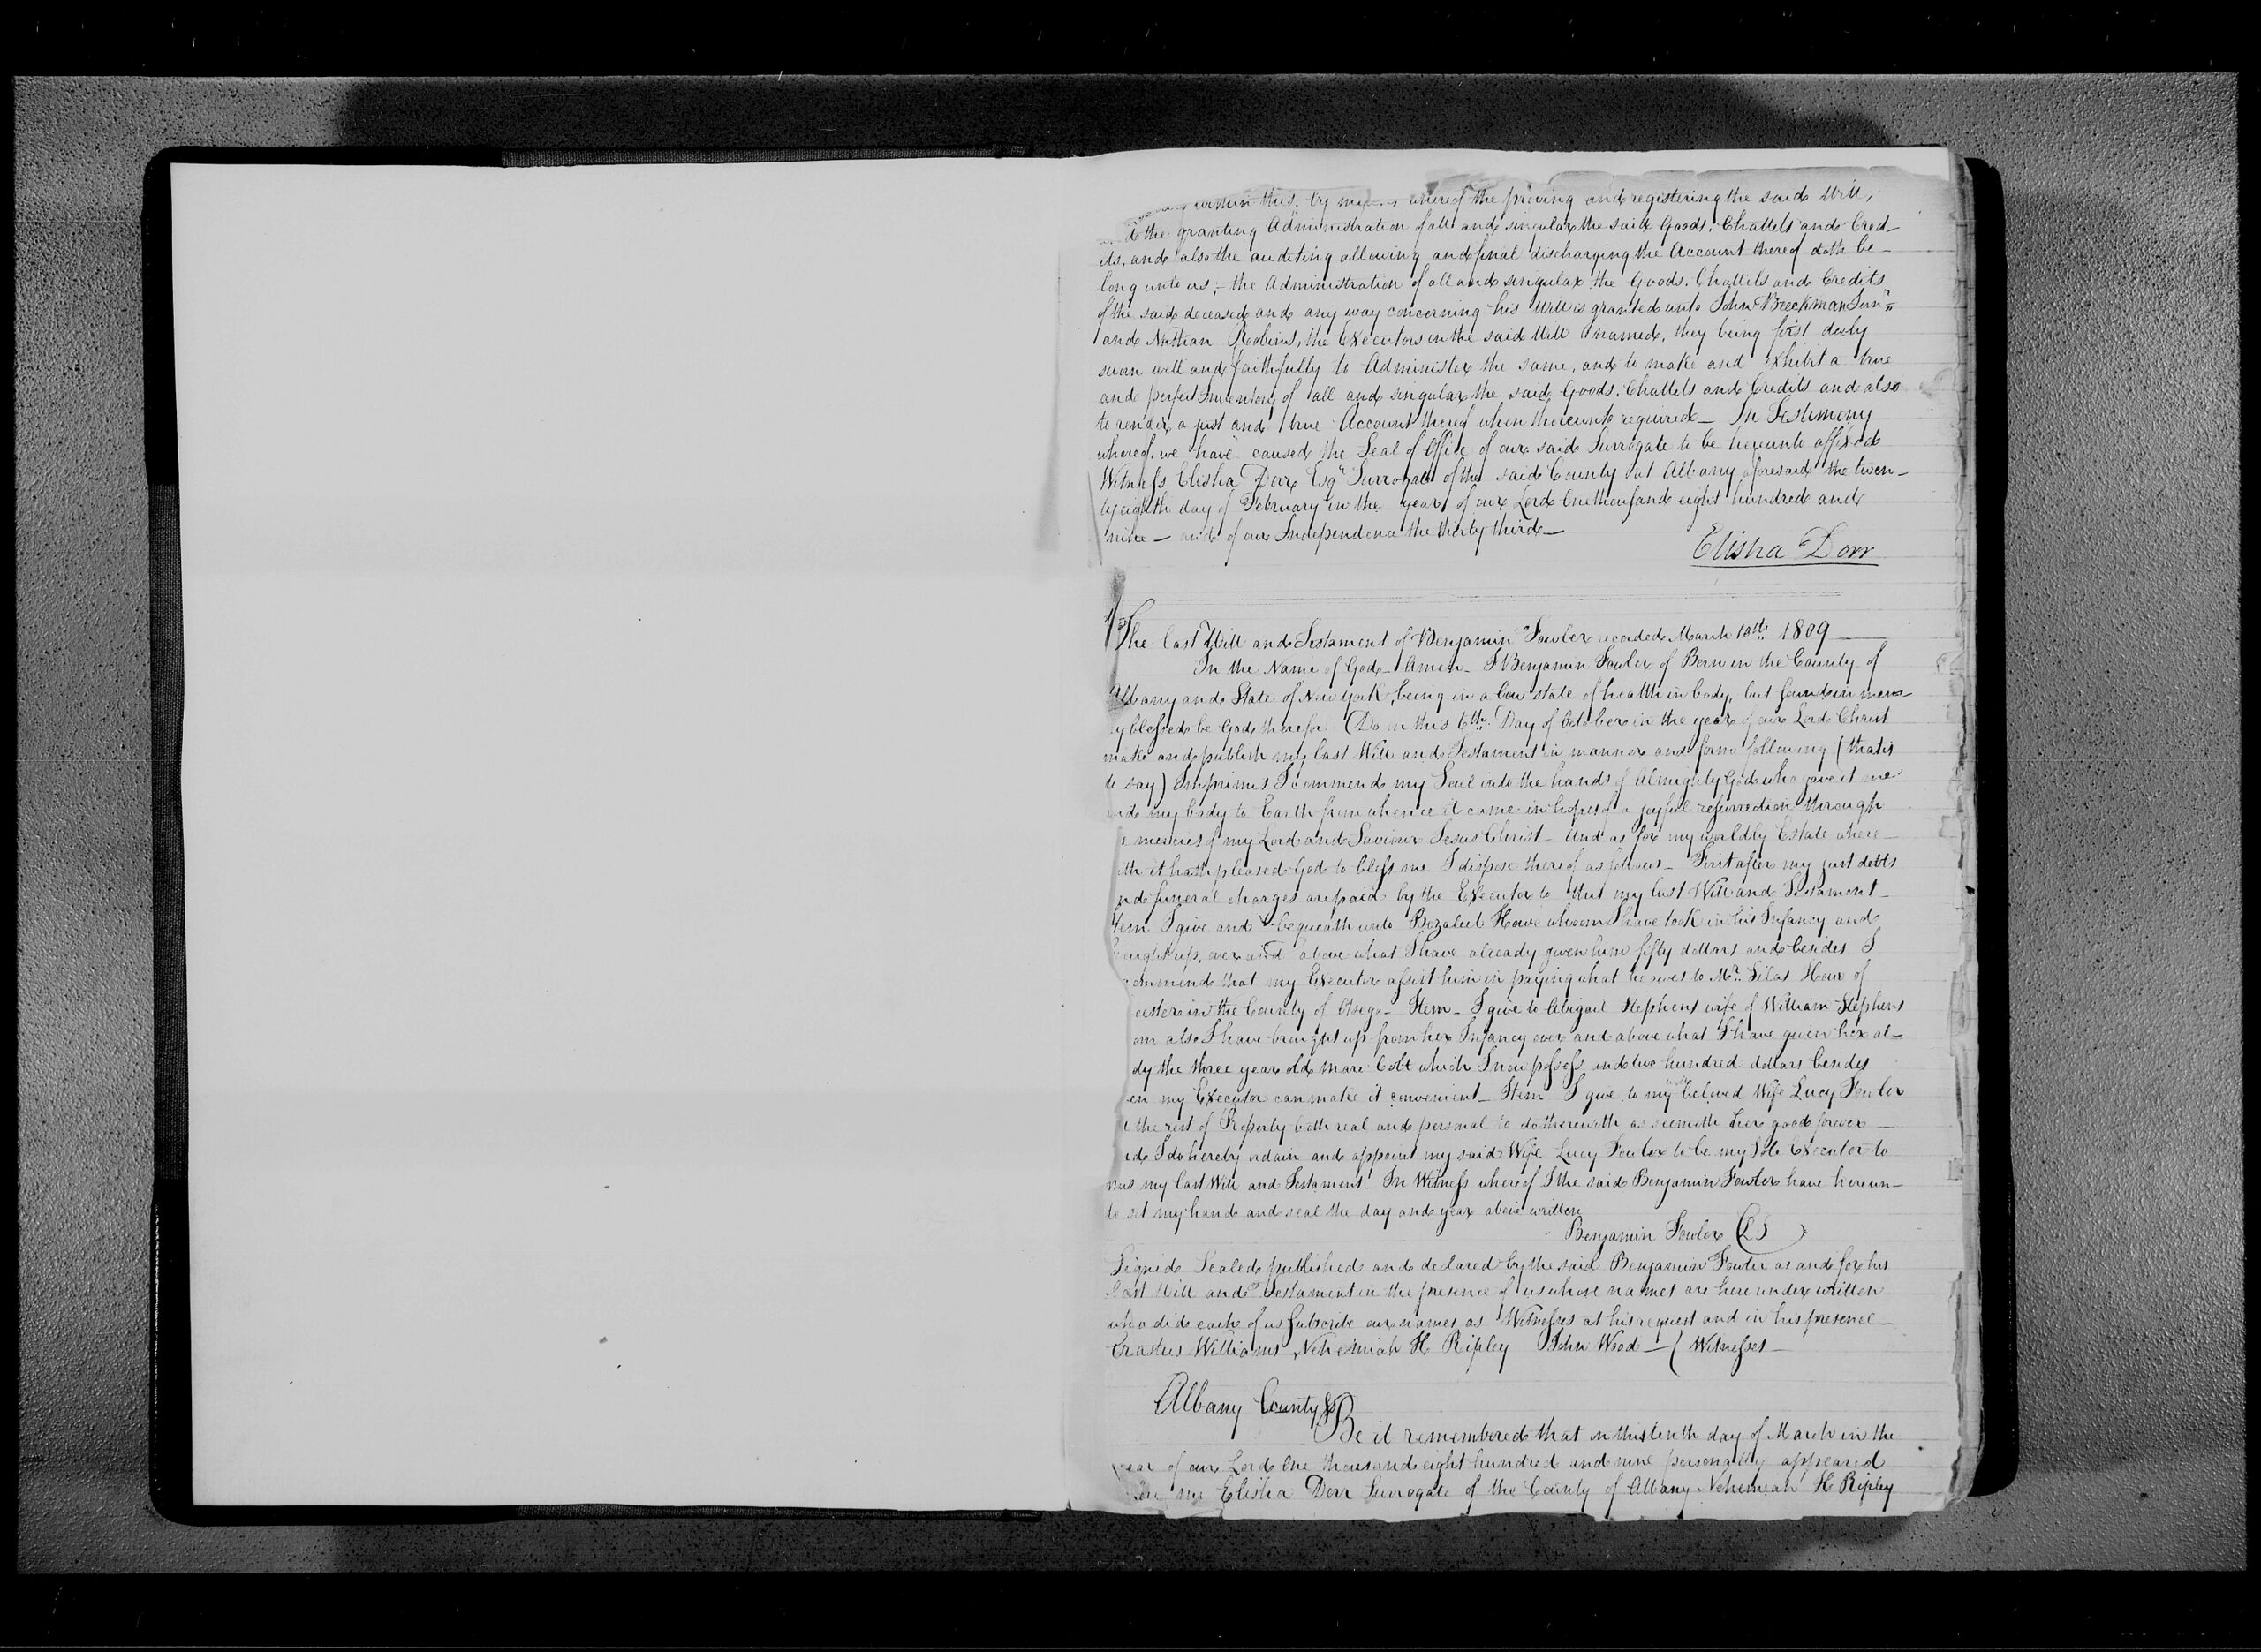 within this, by m whereof the proving and registering the said Will,
d the granting Administration of all and singular the said Goods, Chattels and Cred-
its, and also the auditing allowing and final discharging the Account thereof doth be-
long unto us;- the Administration of all and singular the Goods, Chattels and Credits
of the said deceased and any way concerning his Will is granted unto John Beeckman Junr
and Robins, the Executors in the said Will named, they being first duly
sworn well and faithfully to Administer the same, and to make and exhibit a true
and perfect Inventory of all and singular the said Goods, Chattels and Credits and also
to render a just and true Account thereof when thereunto required- In Testimony
whereof, we have caused the Seal of Office of our said Surrogate to be hereunto affixed
Witness Elisha Dorr Esqr Surrogate of the said County at Albany aforesaid the twen-
tyeighth day of February in the year of our Lord One thousand eight hundred and
nine - and of our Independence the thirty third-
Elisha Dorr
The Last Will and Testament of Benjamin Fowler recorded March 10th 1809
In the Name of God - Amen - I Benjamin Fowler of Bern in the County of
Albany and State of New York, being in a low state of health in body, but sound in mem-
ry blessed be God therefor Do on this 6th Day of October in the year of our Lord Christ
make and publish my last Will and Testament in manner and form following (that is
to say) Imprimis I commend my Soul into the hands of Almighty God who gave it me
and my body to Earth from whence it came in hopes of a joyful resurrection through
e mercies of my Lord and Saviour Jesus Christ - And as for my worldly Estate where-
ith it hath pleased God to bless me I dispose thereof as follows - First after my just debts
nd funeral charges are paid by the Executor to that my last Will and Testament -
Item I give and bequeath unto Bezaleel Howe whom I have took in his Infancy and
ought up, over and above what I have already given him fifty dollars and besides I
commend that my Executor assist him in paying what he owes to Mr. Silas Howe of
cester in the County of Otsego - Item - I give to Abigail Stephens wife of William Stephens
om also I have brought up from her Infancy over and above what I have given her al-
dy the three year old mare Colt which I now possess and two hundred dollars besides
en my Executor can make it convenient - Item I give to my beloved Wife Lucy Fowler
the rest of Property both real and personal to do therewith as seemeth her good forever -
nd I do hereby ordain and appoint my said Wife Lucy Fowler to be my Sole Executor to
this my last Will and Testament - In Witness whereof I the said Benjamin Fowler have hereun-
to set my hand and seal the day and year above written
Benjamin Fowler (LS)
Signed Sealed published and declared by the said Benjamin Fowler as and for his
last Will and Testament in the presence of us whose names are here under written
who did each of us subscribe our names as Witnesses at his request and in his presence -
Erastus Williams Nehemiah H Ripley John Wood - ( Witnesses -
Albany County ss
Be it remembered that on this tenth day of March in the
year of our Lord One thousand eight hundred and nine personally appeared
me Elisha Dorr Surrogate of the County of Albany Nehemiah H Ripley